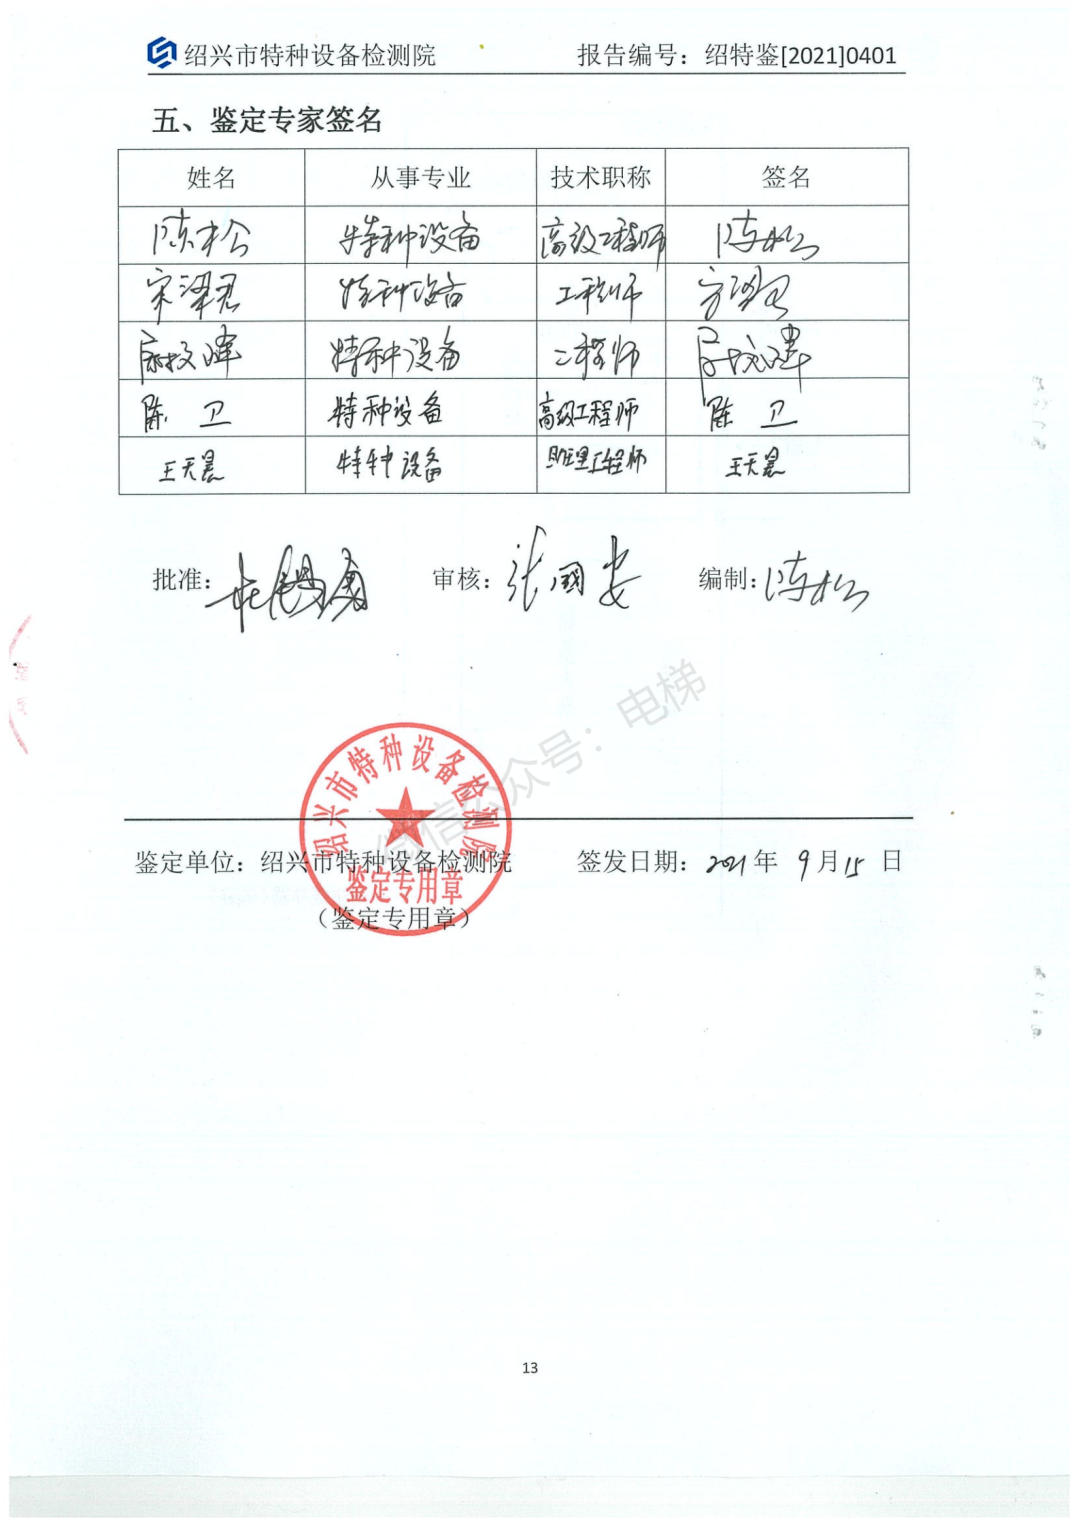 绍兴市特种设备检测院 报告编号：绍特鉴[2021]0401
五、鉴定专家签名
姓名 从事专业 技术职称 签名
陈松 特种设备 高级工程师 陈松
宋泽君 特种设备 工程师
特种设备 工程师
陈卫 特种设备 高级工程师 陈卫
王天晨 特种设备 助理工程师 王天晨
批准： 审核：张國安 编制：陈松
微信公众号：电梯
绍兴市特种设备检测院
鉴定专用章
鉴定单位：绍兴市特种设备检测院 签发日期：2021年 9月15日
（鉴定专用章）
13